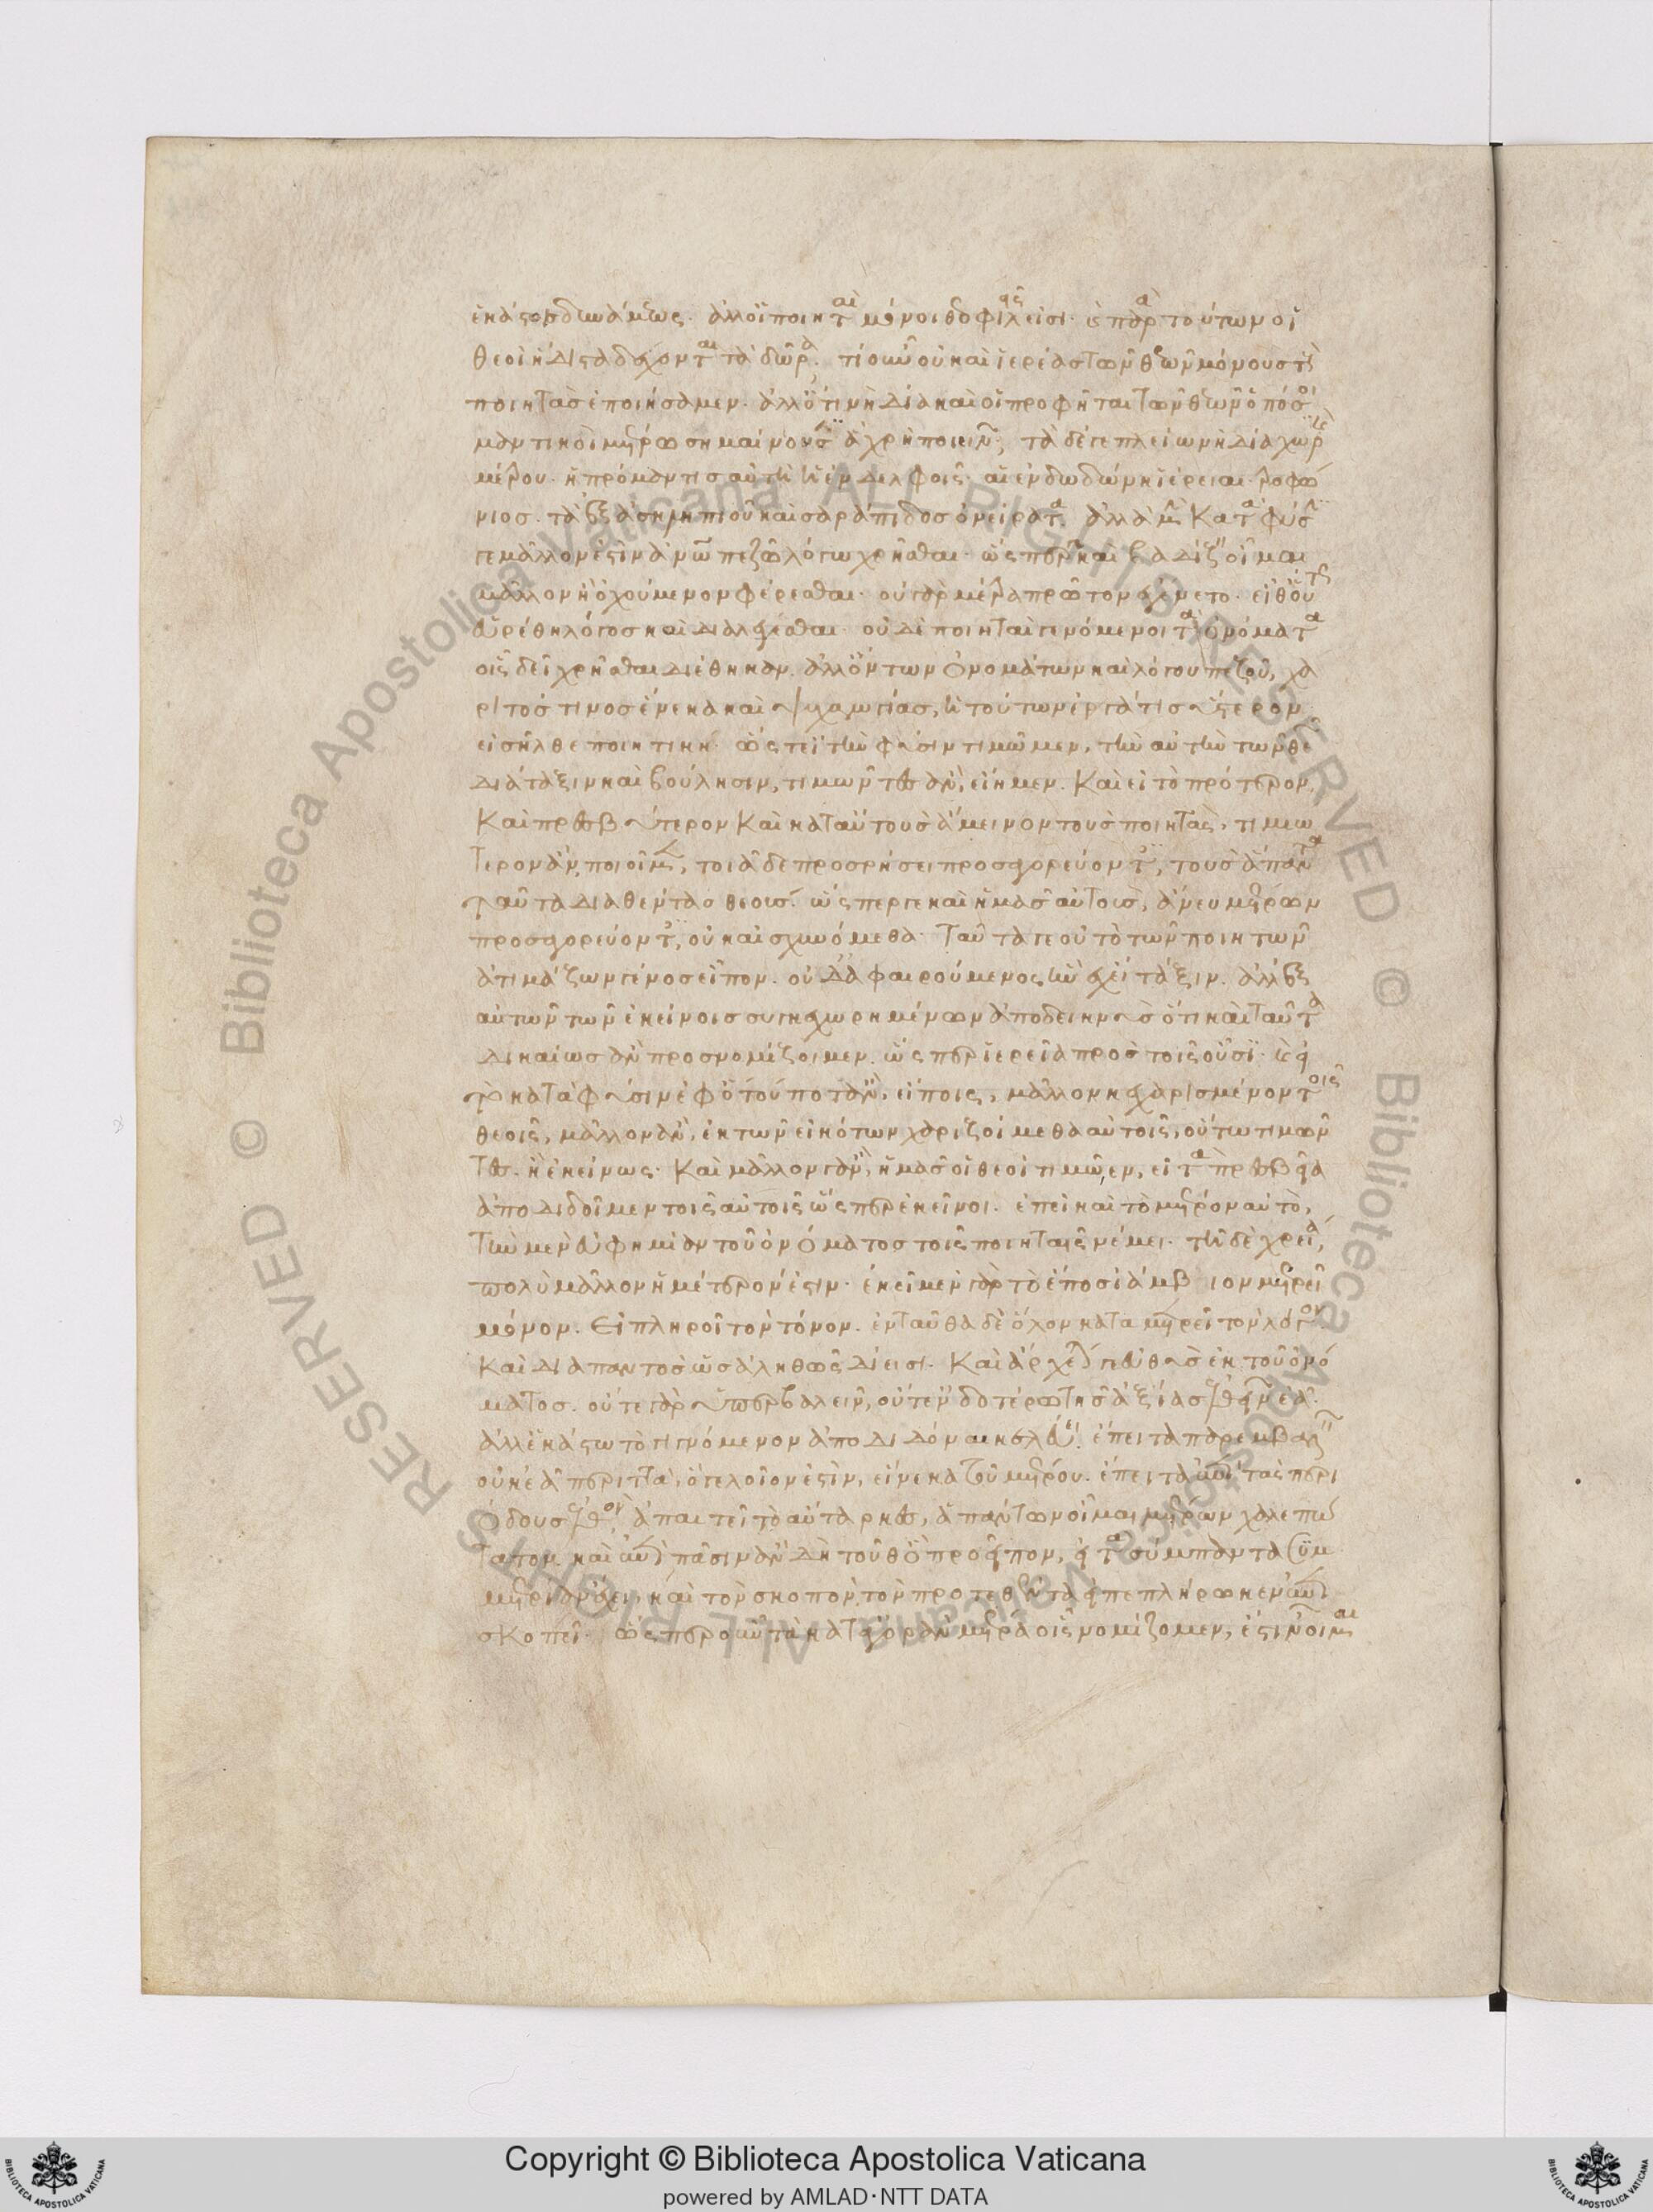 ἑκάστου δυνάμεως. ἀλλ' οἱ ποιηταὶ μόνοι θεοφιλεῖς εἰσι. καὶ παρὰ τούτων οἱ
θεοὶ ἥδιστα δέχονται τὰ δῶρα. τί οὖν οὐ καὶ ἱερέας τῶν θεῶν μόνους τοὺς
ποιητὰς ἐποιήσαμεν. ἀλλ' ὅτι νὴ Δία καὶ οἱ προφῆται τῶν θεῶν ὁπόσοι
μαντικοὶ μέτρω σημαίνουσιν ἃ χρὴ ποιεῖν; τὰ δέ γε πλείω νὴ Δία χωρὶς
μέτρου. ἡ πρόμαντις αὐτὴ ἡ ἐν Δελφοῖς. αἱ ἐν δωδώνη ἱέρειαι. τροφώ
νιος. τὰ ἐξ ἀσκληπιοῦ καὶ σαράπιδος ὀνείρατα. ἀλλὰ μὴν κατὰ φύσιν
γε μᾶλλον ἐστὶν ἀνθρώπω πεζῶ λόγω χρῆσθαι. ὥσπερ καὶ βαδίζειν οἶμαι
μᾶλλον ἢ ὀχούμενον φέρεσθαι. οὐ γὰρ μέτρα πρῶτον ἐγένετο. εἶθ' οὕτως
εὑρέθη λόγος καὶ διαλέγεσθαι. οὐδὲ ποιηταὶ γενόμενοι τὰ ὀνόματα
οἷς δεῖ χρῆσθαι διέθηκαν. ἀλλ' ὄντων ὀνομάτων καὶ λόγου πεζοῦ, χά
ριτός τινος ἕνεκα καὶ ψυχαγωγίας, ἡ τούτων ἐργάτις ὕστερον
εἰσῆλθε ποιητική. ὥστ' εἰ τὴν φύσιν τιμῶμεν, τὴν αὐτὴν τῶν θεῶν
διάταξιν καὶ βούλησιν, τιμῶντες ἂν εἴημεν. Καὶ εἰ τὸ πρότερον
Καὶ πρεσβύτερον Καὶ κατ' αὐτοὺς ἄμεινον τοὺς ποιητάς. τιμιώ
τερον ἂν ποιοῖμεν, τοιᾶδε προσρήσει προσαγορεύοντες, τοὺς ἅπαντα
ταῦτα διαθέντας θεούς. ὥσπερ γε καὶ ἡμᾶς αὐτοὺς, ἄνευ μέτρων
προσαγορεύοντες, οὐκ αἰσχυνόμεθα. Ταῦτά γε οὐ τὸ τῶν ποιητῶν
ἀτιμάζων γένος εἶπον. οὐδ' ἀφαιρούμενος ἣν ἔχει τάξιν. ἀλλ' ἐξ
αὐτῶν τῶν ἐκείνοις συγκεχωρημένων ἀποδεικνὺς ὅτι καὶ ταῦτα
δικαίως ἂν προσνομίζοιμεν. ὥσπερ ἱερεῖα προστοῖς οὖσι. καὶ εἰ
τὸ κατὰ φύσιν ἐφ' ὅτου ποτ' ἂν εἴποις, μᾶλλον κεχαρισμένον τοῖς
θεοῖς, μᾶλλον ἂν ἐκ τῶν εἰκότων χαριζοίμεθα αὐτοῖς, οὕτω τιμῶν
τες. ἢ ἐκείνως. Καὶ μᾶλλον γ' ἂν ἡμᾶς οἱ θεοὶ τιμῶεν, εἰ τὰ πρεσβεῖα
ἀποδιδοῖμεν τοῖς αὐτοῖς ὥσπερ ἐκεῖνοι. ἐπεὶ καὶ τὸ μέτρον αὐτὸ,
τὴν μὲν εὐφημίαν τοῦ ὀνόματος τοῖς ποιηταῖς νέμει. τῆ δὲ χρεία,
πολὺ μᾶλλον ἡμέτερον ἐστίν. ἐκεῖ μὲν γὰρ τὸ ἔπος ἰάμβιον μετρεῖ
μόνον. Εἰ πληροῖ τὸν τόνον. ἐνταῦθα δὲ ὅλον καταμετρεῖ τὸν λόγον.
Καὶ διαπαντὸς ὡς ἀληθῶς δίεισι. Καὶ ἄρχεται γ' εὐθὺς ἐκ τοῦ ὀνό
ματος. οὔτε γὰρ ὑπερβαλεῖν, οὔτ' ἐνδοτέρω τῆς ἀξίας ἐλθεῖν ἐᾶ.
ἀλλ' ἑκάστω τὸ γιγνόμενον ἀποδιδόναι κελεύει. ἔπειτα παρεμβαλεῖν
οὐκ ἐᾶ περιττὰ, ὃ γελοῖον ἐστίν, εἵνεκα τοῦ μέτρου. ἔπειτα κατὰ τὰς περι
όδους μέτρον, ἀπαιτεῖ τὸ αὔταρκες, ἁπάντων οἶμαι μέτρων χαλεπώ
τατον. καὶ ἐπὶ πᾶσιν ἂν δὴ τοῦθ' ὃ προεῖπον, εἰ τὰ σύμπαντα συμ
μετρίαν ἔχει, καὶ τὸν σκοπὸν τὸν προτεθέντα εἰ πεπλήρωκεν
σκοπεῖ. ὥσπερ οὖν τὰ κατ' ἀγορὰν μέτρα οἷς νομίζομεν, ἐστὶν οἶμαι